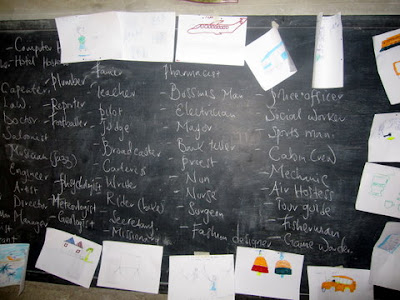 - Computer
- Hotel
Law
Doctor
Salonist
Musician (jazz)
Engineer
Artist
Director
Manager
- Plumber
- Reporter
- Footballer
- Phychologist
- Meteorologist
- Geologist
- Famer
- teacher
- pilot
- Judge
- Broadcaster
- Caterers
- Rider (bike)
- Secretary
- Bussines Man
- Electrician
- Major
- Bank teller
- priest
- Nun
- Nurse
- Surgeon
- Fashion designer
- Police officer
- Social Worker
- Sports man
- Cabin crew
- Mechanic
- Air Hostess
- Tour guide
- Fisherman
- Game Warden